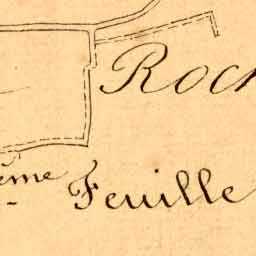 Roch
ème Feuille